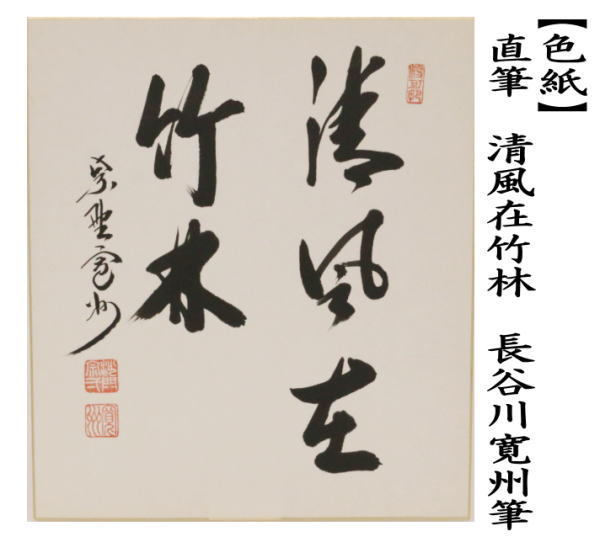 【色紙】
直筆　清風在竹林　長谷川寛州筆
清風在
竹林
紫野寛州